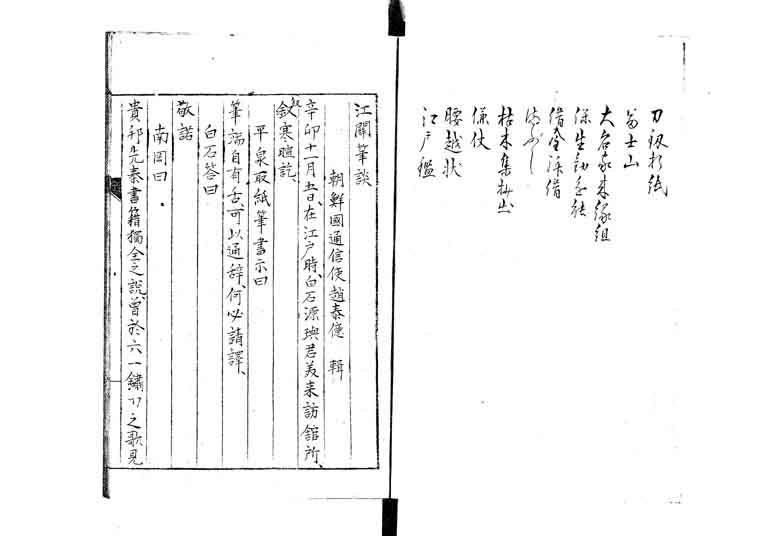 刀劔折紙
富士山
大名家来縁組
借金済借
枯木集抜出
儀仗
腰越状
江戸鑑
江關筆談
朝鮮國通信使趙泰億 輯
辛卯十一月五日、在江戸時、白石源璵君美来訪舘所、
叙寒暄訖、
平泉取紙筆書示曰
筆端自有舌、可以通辞、何必請譯、
白石答曰
敬諾
南岡曰
貴邦先秦書籍獨全之説、曽於六一鏽刀之歌見